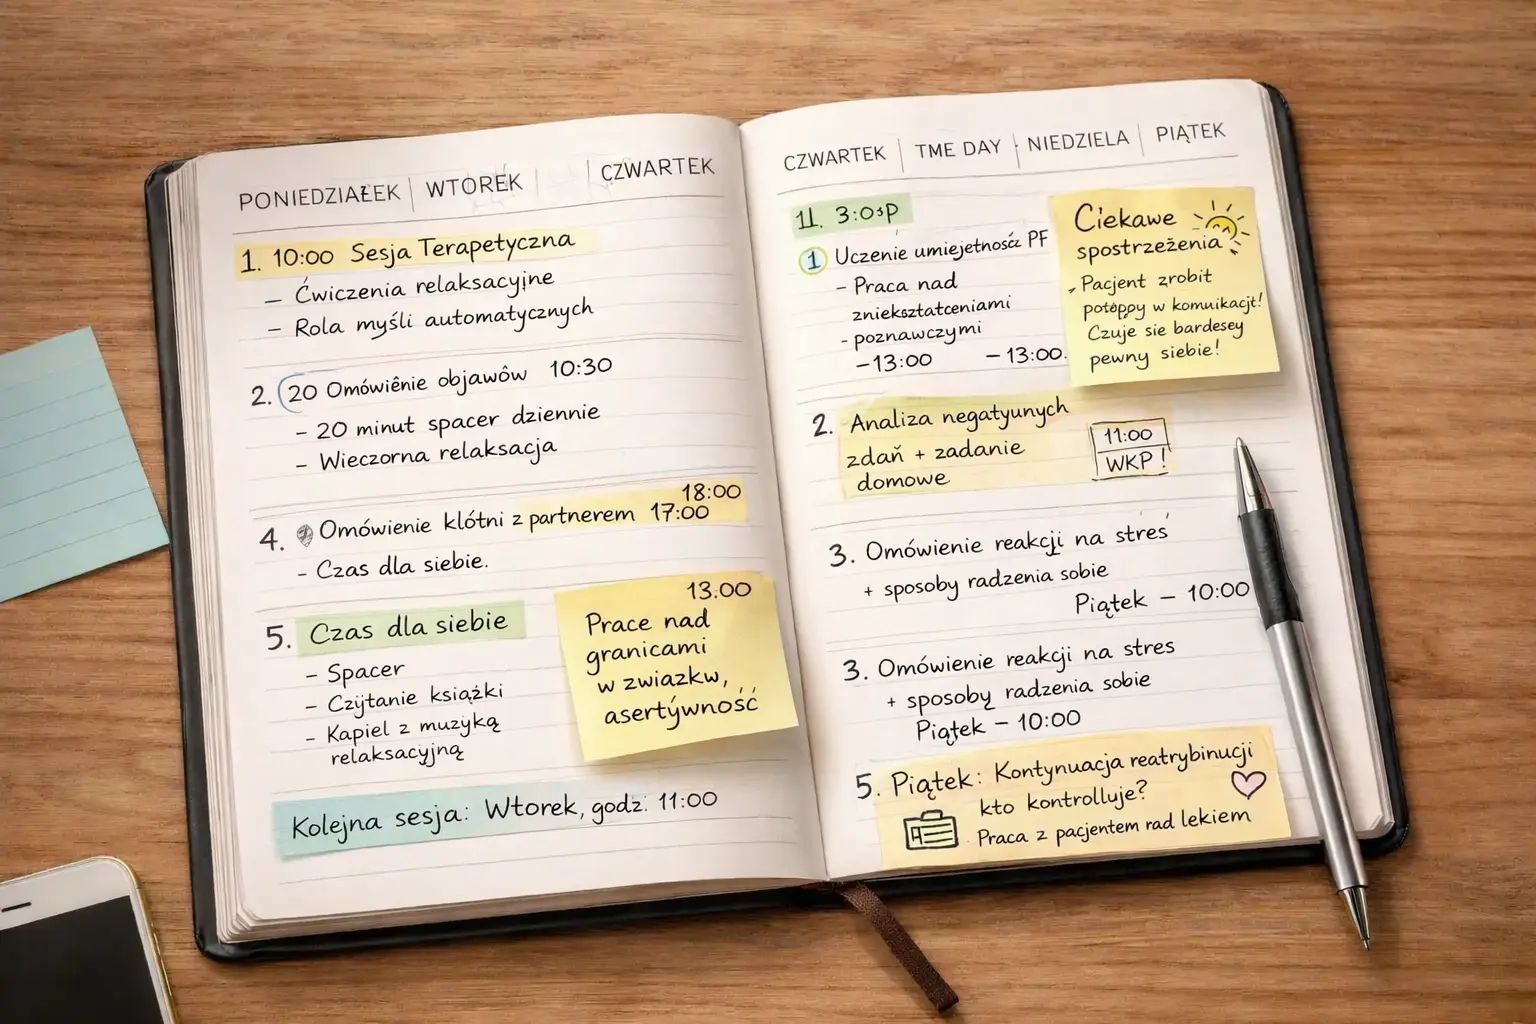 PONIEDZIAŁEK | WTOREK | CZWARTEK
1. 10:00 Sesja Terapetyczna
– Ćwiczenia relaksacyjne
– Rola myśli automatycznych
2. 20 Omówiênie objawôw 10:30
– 20 minut spacer dziennie
– Wieczorna relaksacja
18:00
4. Omówienie klótni z partnerem 17:00
– Czas dla siebie.
5. Czas dla siebie
– Spacer
– Czytanie książki
– Kapiel z muzyką
relaksacyjną
13.00
Prace nad
granicami
w zwiazkw,
asertywność
Kolejna sesja: Wtorek, godz: 11:00
CZWARTEK | TME DAY | NIEDZIELA | PIĄTEK
11. 3:0
1 Uczenie umiejetność PF
– Praca nad
zniekształceniami
- poznawczymi
– 13:00 – 13:00.
Ciekawe
spostrzeżenia
Pacjent zrobit
w komuikacji!
Czuje sie bardesey
pewny siebie!
2. Analiza negatyunych
zdań + zadanie
domowe
11:00
WKP!
3. Omówienie reakcji na stres
+ sposoby radzenia sobie
Piątek – 10:00
3. Omówienie reakcji na stres
+ sposoby radzenia sobie
Piątek – 10:00
5. Piątek: Kontynuacja reatrybinucji
kto kontrolluje?
Praca z pacjentem rad lekiem